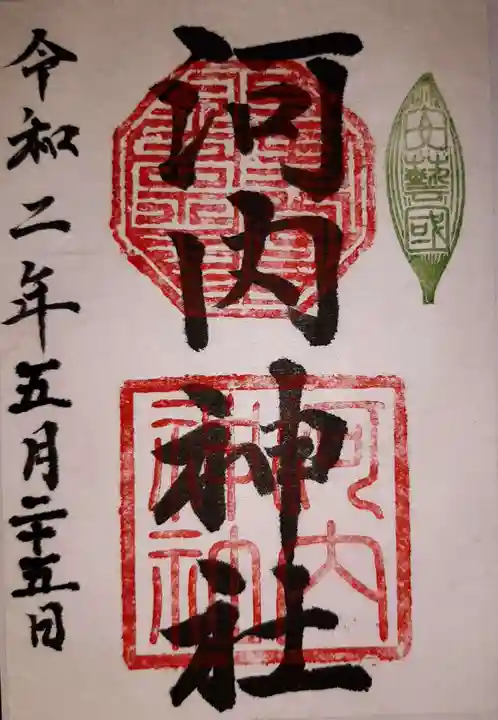 安藝國
河内神社
河内
神社
令和二年五月二十五日